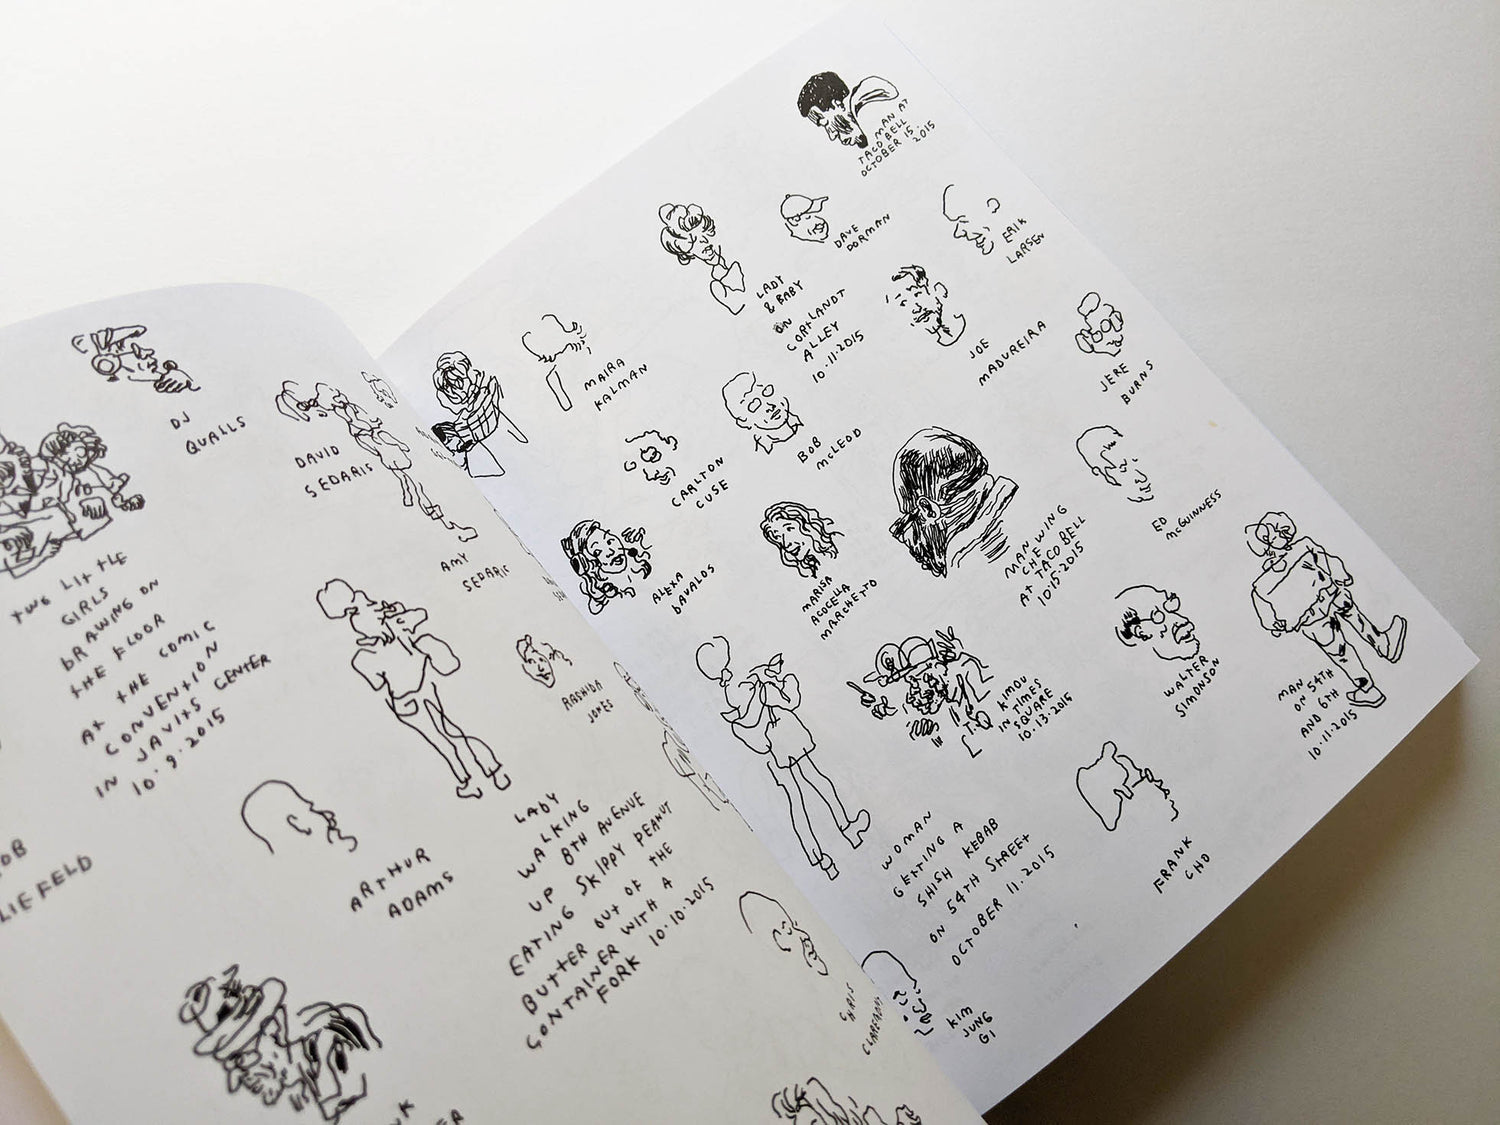 DJ
QUALLS
DAVID
SEDARIS
AMY
SEDARIS
TWO LITTLE
GIRLS
DRAWING ON
THE FLOOR
AT THE COMIC
CONVENTION
IN JAVITS CENTER
10.9.2015
RASHIDA
JONES
LIEFELD
ARTHUR
ADAMS
LADY
WALKING
UP 8TH AVENUE
EATING SKIPPY PEANUT
BUTTER OUT OF THE
CONTAINER WITH A
FORK 10.10.2015
CHRIS
CLAREMONT
MAN AT
TACO BELL
OCTOBER 15
2015
MAIRA
KALMAN
LADY
& BABY
ON
CORTLANDT
ALLEY
10.11.2015
DAVE
DORMAN
ERIK
LARSEN
JOE
MADUREIRA
JERE
BURNS
CARLTON
CUSE
BOB
McLEOD
ALEXA
DAVALOS
MARISA
ACOCELLA
MARCHETTO
MAN WING
CHE
AT TACO BELL
10.15.2015
ED
McGUINNESS
KIMOU
IN TIMES
SQUARE
10.13.2015
WALTER
SIMONSON
MAN
ON 54TH
AND 6TH
10.11.2015
WOMAN
GETTING A
SHISH KEBAB
ON 54TH STREET
OCTOBER 11.2015
FRANK
CHO
KIM
JUNG
GI